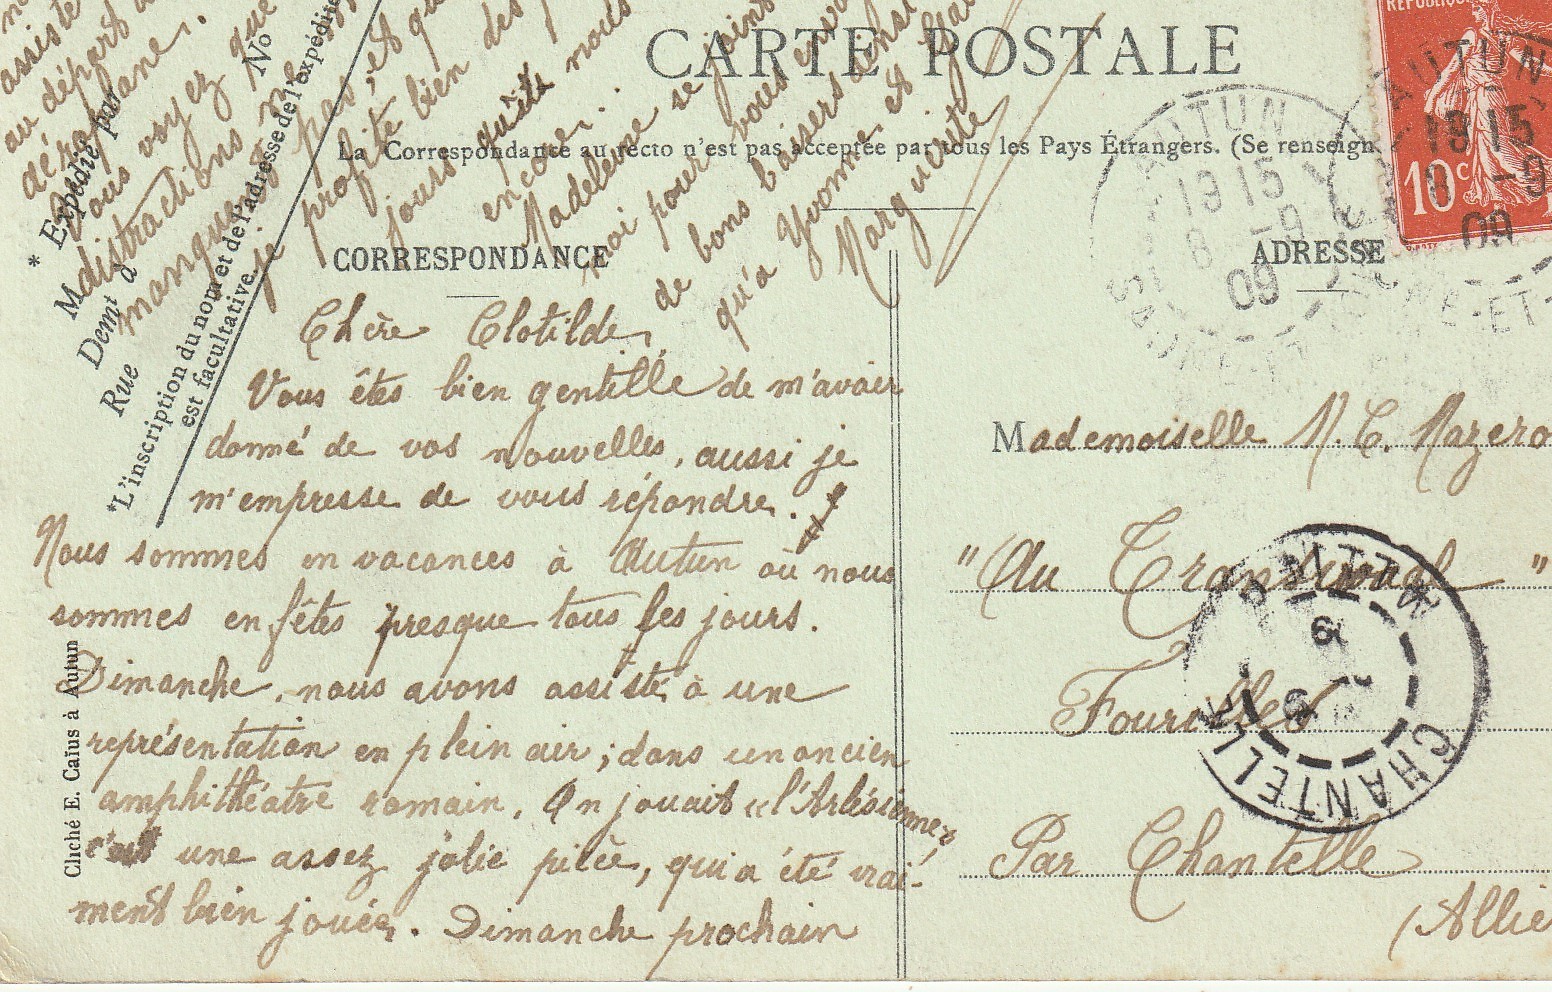 CARTE POSTALE
La Correspondance au recto n'est pas acceptée par tous les Pays Étrangers. (Se renseign
CORRESPONDANCE
ADRESSE
Chère Clotilde,
Vous êtes bien gentille de m'avoir
donné de vos nouvelles, aussi je
m'empresse de vous répondre.
Nous sommes en vacances à Autun où nous
sommes en fêtes presque tous les jours.
Dimanche, nous avons assisté à une
représentation en plein air; dans un ancien
amphithéatre romain. On jouait «l'Arlésienne»
c'est une assez jolie pièce, qui a été vrai-
ment bien jouée. Dimanche prochain
assiste
au départ
aéroplane.
Vous voyez que
distractions ne
manquez pas, et que
je profite bien des
jours qu'ils nous
encore.
Madeleine se joint
moi pour vous
de bons baisers ainsi
qu'à Yvonne et
Marguerite
No
* Expédié par
M
Demt à
Rue
*L'inscription du nom et de l'adresse de l'expédi
est facultative.
Cliché E. Caïus à Autun
Mademoiselle M. C. Mazero
"Au "
Fourilles
Par Chantelle
(Allie
REPUBLIQUE
10 c
AUTUN
19 15
8 -9
09
SAÔNE-ET-LOIRE
AUTUN
19 15
8 -9
09
NE-ET-
CHANTELLE
09